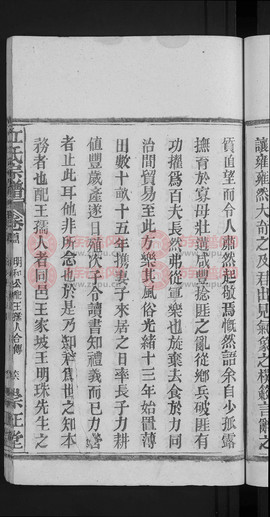 讓雍雍然大奇之及君出見氣象之樸
質迫望而令人肅然起敬焉慨然語余自少孤露
撫育於寡母壯遘咸豐捻匪之亂從鄉兵破匪有
功擢為百夫長然弗從軍樂也旋棄去食於力同
治間貿易至此方樂其風俗光緒十三年始置薄
田數十畝十五年攜妻子來居之日率長子力耕
值豐歲產遂日殖次子令讀書知禮義而已力
者止此耳他非所念也於是乃知君為世之知本
務者也配王孺人者同邑王家坡王明珠先生之
江氏宗譜 卷首 王孺人合傳 崇